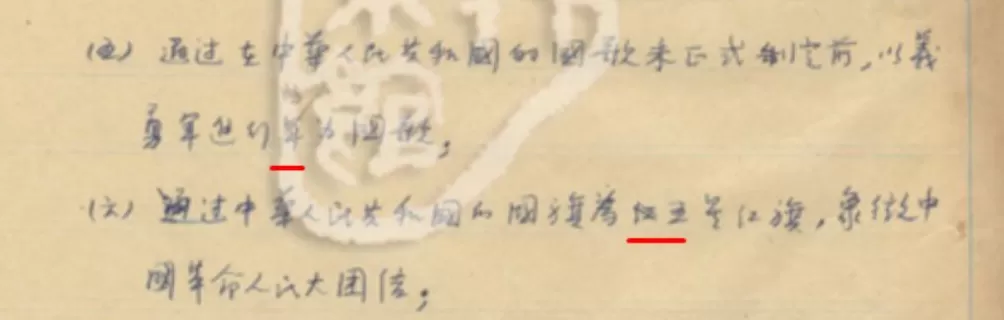 (五) 通过在中華人民共和國的國歌未正式制定前,以義
勇军进行军为國歌;
(六) 通过中華人民共和國的國旗為红五星红旗,象徵中
國革命人民大团结;